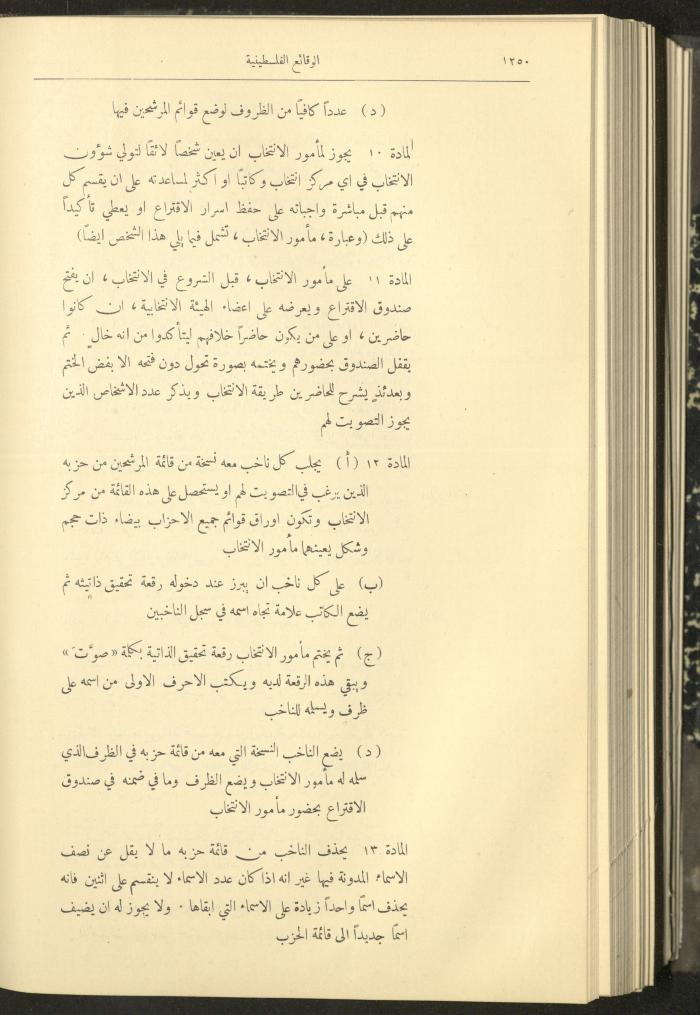 ١٢٥٠
الوقائع الفلسطينية
( د ) عدداً كافياً من الظروف لوضع قوائم المرشحين فيها
المادة ١٠ يجوز لمأمور الانتخاب ان يعين شخصاً لائقاً لتولي شؤون
الانتخاب في اي مركز انتخاب وكاتباً او اكثر لمساعدته على ان يقسم كل
منهم قبل مباشرة واجباته على حفظ اسرار الاقتراع او يعطي تأكيداً
على ذلك (وعبارة ، مأمور الانتخاب ، تشمل فيما يلي هذا الشخص ايضاً)
المادة ١١ على مأمور الانتخاب ، قبل الشروع في الانتخاب ، ان يفتح
صندوق الاقتراع ويعرضه على اعضاء الهيئة الانتخابية ، ان كانوا
حاضرين ، او على من يكون حاضراً خلافهم ليتأكدوا من انه خالٍ . ثم
يقفل الصندوق بحضورهم ويختمه بصورة تحول دون فتحه الا بفض الختم
وبعدئذٍ يشرح للحاضرين طريقة الانتخاب ويذكر عدد الاشخاص الذين
يجوز التصويت لهم
المادة ١٢ (أ) يجلب كل ناخب معه نسخة من قائمة المرشحين من حزبه
الذين يرغب في التصويت لهم او يستحصل على هذه القائمة من مركز
الانتخاب وتكون اوراق قوائم جميع الاحزاب بيضاء ذات حجم
وشكل يعينهما مأمور الانتخاب
(ب) على كل ناخب ان يبرز عند دخوله رقعة تحقيق ذاتيته ثم
يضع الكاتب علامة تجاه اسمه في سجل الناخبين
( ج ) ثم يختم مأمور الانتخاب رقعة تحقيق الذاتية بكلمة « صوَّتَ »
ويبقي هذه الرقعة لديه ويكتب الاحرف الاولى من اسمه على
ظرف ويسلمه للناخب
( د ) يضع الناخب النسخة التي معه من قائمة حزبه في الظرف الذي
سلمه له مأمور الانتخاب ويضع الظرف وما في ضمنه في صندوق
الاقتراع بحضور مأمور الانتخاب
المادة ١٣ يحذف الناخب من قائمة حزبه ما لا يقل عن نصف
الاسماء المدونة فيها غير انه اذا كان عدد الاسماء لا ينقسم على اثنين فانه
يحذف اسماً واحداً زيادة على الاسماء التي ابقاها . ولا يجوز له ان يضيف
اسماً جديداً الى قائمة الحزب